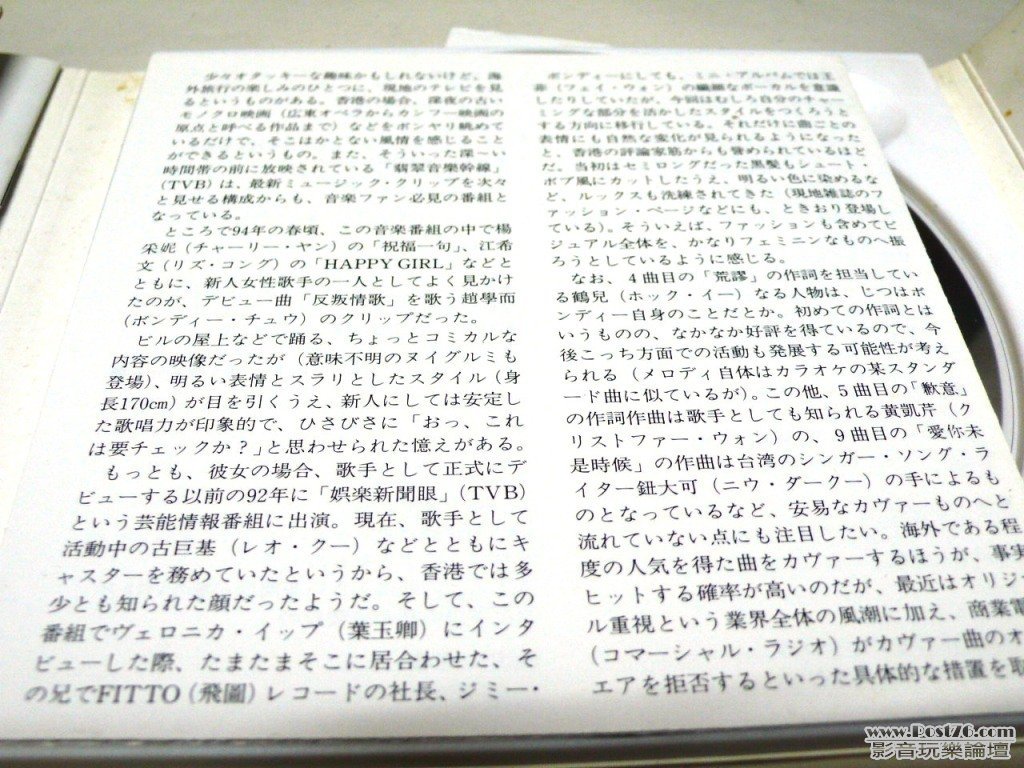 少々オタッキーな趣味かもしれないけど、海
外旅行の楽しみのひとつに、現地のテレビを見
るというものがある。香港の場合、深夜の古い
モノクロ映画（広東オペラからカンフー映画の
原点と呼べる作品まで）などをボンヤリ眺めて
いるだけで、そこはかとない風情を感じること
ができるというもの。また、そういった深〜い
時間帯の前に放映されている「翡翠音樂幹線」
（TVB）は、最新ミュージック・クリップを次々
と見せる構成からも、音楽ファン必見の番組と
なっている。
ところで94年の春頃、この音楽番組の中で楊
采妮（チャーリー・ヤン）の「祝福一句」、江希
文（リズ・コング）の「HAPPY GIRL」などと
ともに、新人女性歌手の一人としてよく見かけ
たのが、デビュー曲「反叛情歌」を歌う趙學而
（ボンディー・チュウ）のクリップだった。
ビルの屋上などで踊る、ちょっとコミカルな
内容の映像だったが（意味不明のヌイグルミも
登場）、明るい表情とスラリとしたスタイル（身
長170cm）が目を引くうえ、新人にしては安定し
た歌唱力が印象的で、ひさびさに「おっ、これ
は要チェックか？」と思わせられた憶えがある。
もっとも、彼女の場合、歌手として正式にデ
ビューする以前の92年に「娯楽新聞眼」（TVB）
という芸能情報番組に出演。現在、歌手として
活動中の古巨基（レオ・クー）などとともにキ
ャスターを務めていたというから、香港では多
少とも知られた顔だったようだ。そして、この
番組でヴェロニカ・イップ（葉玉卿）にインタ
ビューした際、たまたまそこに居合わせた、そ
の兄でFITTO（飛圖）レコードの社長、ジミー・
ボンディーにしても、ミニ・アルバムでは王
菲（フェイ・ウォン）の繊細なボーカルを意識
したりしていたが、今回はむしろ自分のチャー
ミングな部分を活かしたスタイルをつくろうと
する方向に移行してる。それだけに曲ごとの
表情にも自然な変化が見られるようになった
と、香港の評論家筋からも誉められているほど
だ。当初はセミロングだった黒髪もショート・
ボブ風にカットしたうえ、明るい色に染めるな
ど、ルックスも洗練されてきた（現地雑誌のフ
ァッション・ページなどにも、ときおり登場し
ている）。そういえば、ファッションも含めてビ
ジュアル全体を、かなりフェミニンなものへ振
ろうとしているように感じる。
なお、4曲目の「荒謬」の作詞を担当してい
る鶴兒（ホック・イー）なる人物は、じつはボ
ンディー自身のことだとか。初めての作詞とは
いうものの、なかなか好評を得ているので、今
後こっち方面での活動も発展する可能性が考え
られる（メロディ自体はカラオケの某スタンダ
ード曲に似ているが）。この他、5曲目の「歉意」
の作詞作曲は歌手としても知られる黄凱芹（ク
リストファー・ウォン）の、9曲目の「愛你未
是時候」の作曲は台湾のシンガー・ソング・ラ
イター鈕大可（ニウ・ダークー）の手によるも
のとなっているなど、安易なカヴァーものへと
流れていない点にも注目したい。海外である程
度の人気を得た曲をカヴァーするほうが、事実
ヒットする確率が高いのだが、最近はオリジ
ル重視という業界全体の風潮に加え、商業電
（コマーシャル・ラジオ）がカヴァー曲のオ
エアを拒否するといった具体的な措置を取
www.Post76.com
影音玩樂論壇